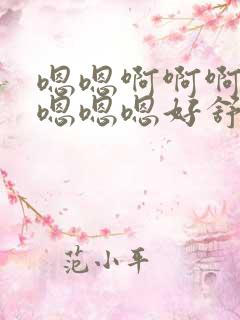 嗯嗯啊啊啊
嗯嗯嗯好舒
范小平